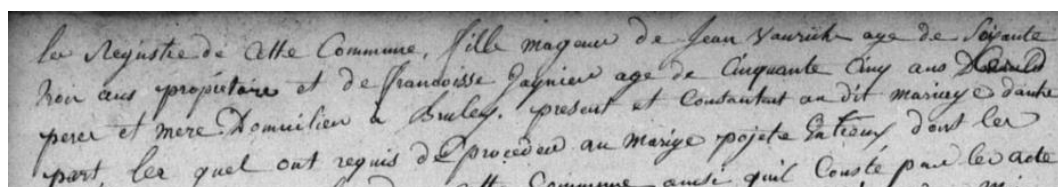 les Registre de Cette Commune, fille mageur de Jean Vanrick age de Soixante
trois ans propriétaire et de francoisse Gagnier age de Cinquante Cinq ans
perer et mere Domicilier a Bruley. present et Consantant au dit mariage dautre
part, les quel ont requis de proceder au marige pojete Entieux dont les
Cette Commune ainsi quil Consté par les acte